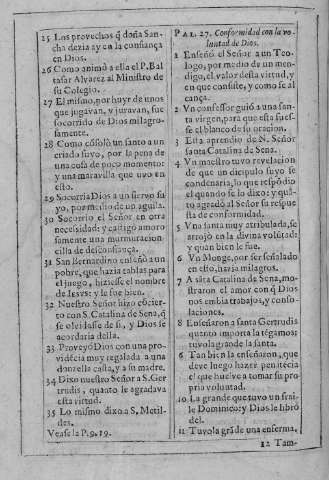 25 Los provechos q̃ doña San-
cha dezia ay en la confiança
en Dios.
26 Como animò a ella el P. Bal
tasar Alvarez al Ministro de
su Colegio.
27 El mismo, por huyr de unos
que jugavan, y juravan, fue
socorrido de Dios milagro-
samente.
28 Como cõsolò un santo a un
criado suyo, por la pena de
una cosa de poco momento
y una maravilla que uvo en
esto.
29 Socorria Dios a un siervo su
yo, por medio de un aguila.
30 Socorrio el Señor en otra
necessidad: y castigò amoro
samente una murmuracion-
cilla de desconfiança.
31 San Bernardino enseñò a un
pobre, que hazia tablas para
el juego, hiziesse el nombre
de Iesvs: y le fue bien.
32 Nuestro Señor hizo cõcier-
to con S. Catalina de Sena, q̃
se olvidasse de si, y Dios se
acordaria della.
33 Proveyò Dios con una pro-
vidẽcia muy regalada a una
donzella casta, y a su madre.
34 Dixo nuestro Señor a S. Ger
trudis, quanto le agradava
esta virtud.
35 Lo mismo dixo a S. Metil-
des.
Vease la P. 9. 19.
PAL. 27. Conformidad con la vo-
luntad de Dios.
1 Enseñò el Señor a un Teo-
logo, por medio de un men-
digo, el valor desta virtud, y
en que consiste, y como se al
cança.
2 Vn confessor guiò a una san-
ta virgen, para que esta fues-
se el blanco de su oracion.
3 Esta aprendio de N. Señor
santa Catalina de Sena.
4 Vn maestro tuvo revelacion
de que un dicipulo suyo se
condenaria; lo que respõdio
el quando se lo dixo: y quã-
to agradò al Señor su respue
sta de conformidad.
5 Vna santa muy atribulada, se
arrojò en la divina volũtad
y quan bien le fue.
6 Vn Monge, por ser señalado
en esto, havia milagros.
7 A sãta Catalina de Sena, mo-
straron el amor con q̃ Dios
nos embia trabajos, y conso-
laciones.
8 Enseñaron a santa Gertrudis
quanto importa la tẽgamos:
tuvola grande la santa.
9 Tan bien la enseñaron, que
deve luego hazer penitecia
el que huelve a tomar su pro
pria voluntad.
10 La grande que tuvo un frai-
le Dominico: y Dios le librò
del.
11 Tuvola grãde una enferma,
12 Tam-